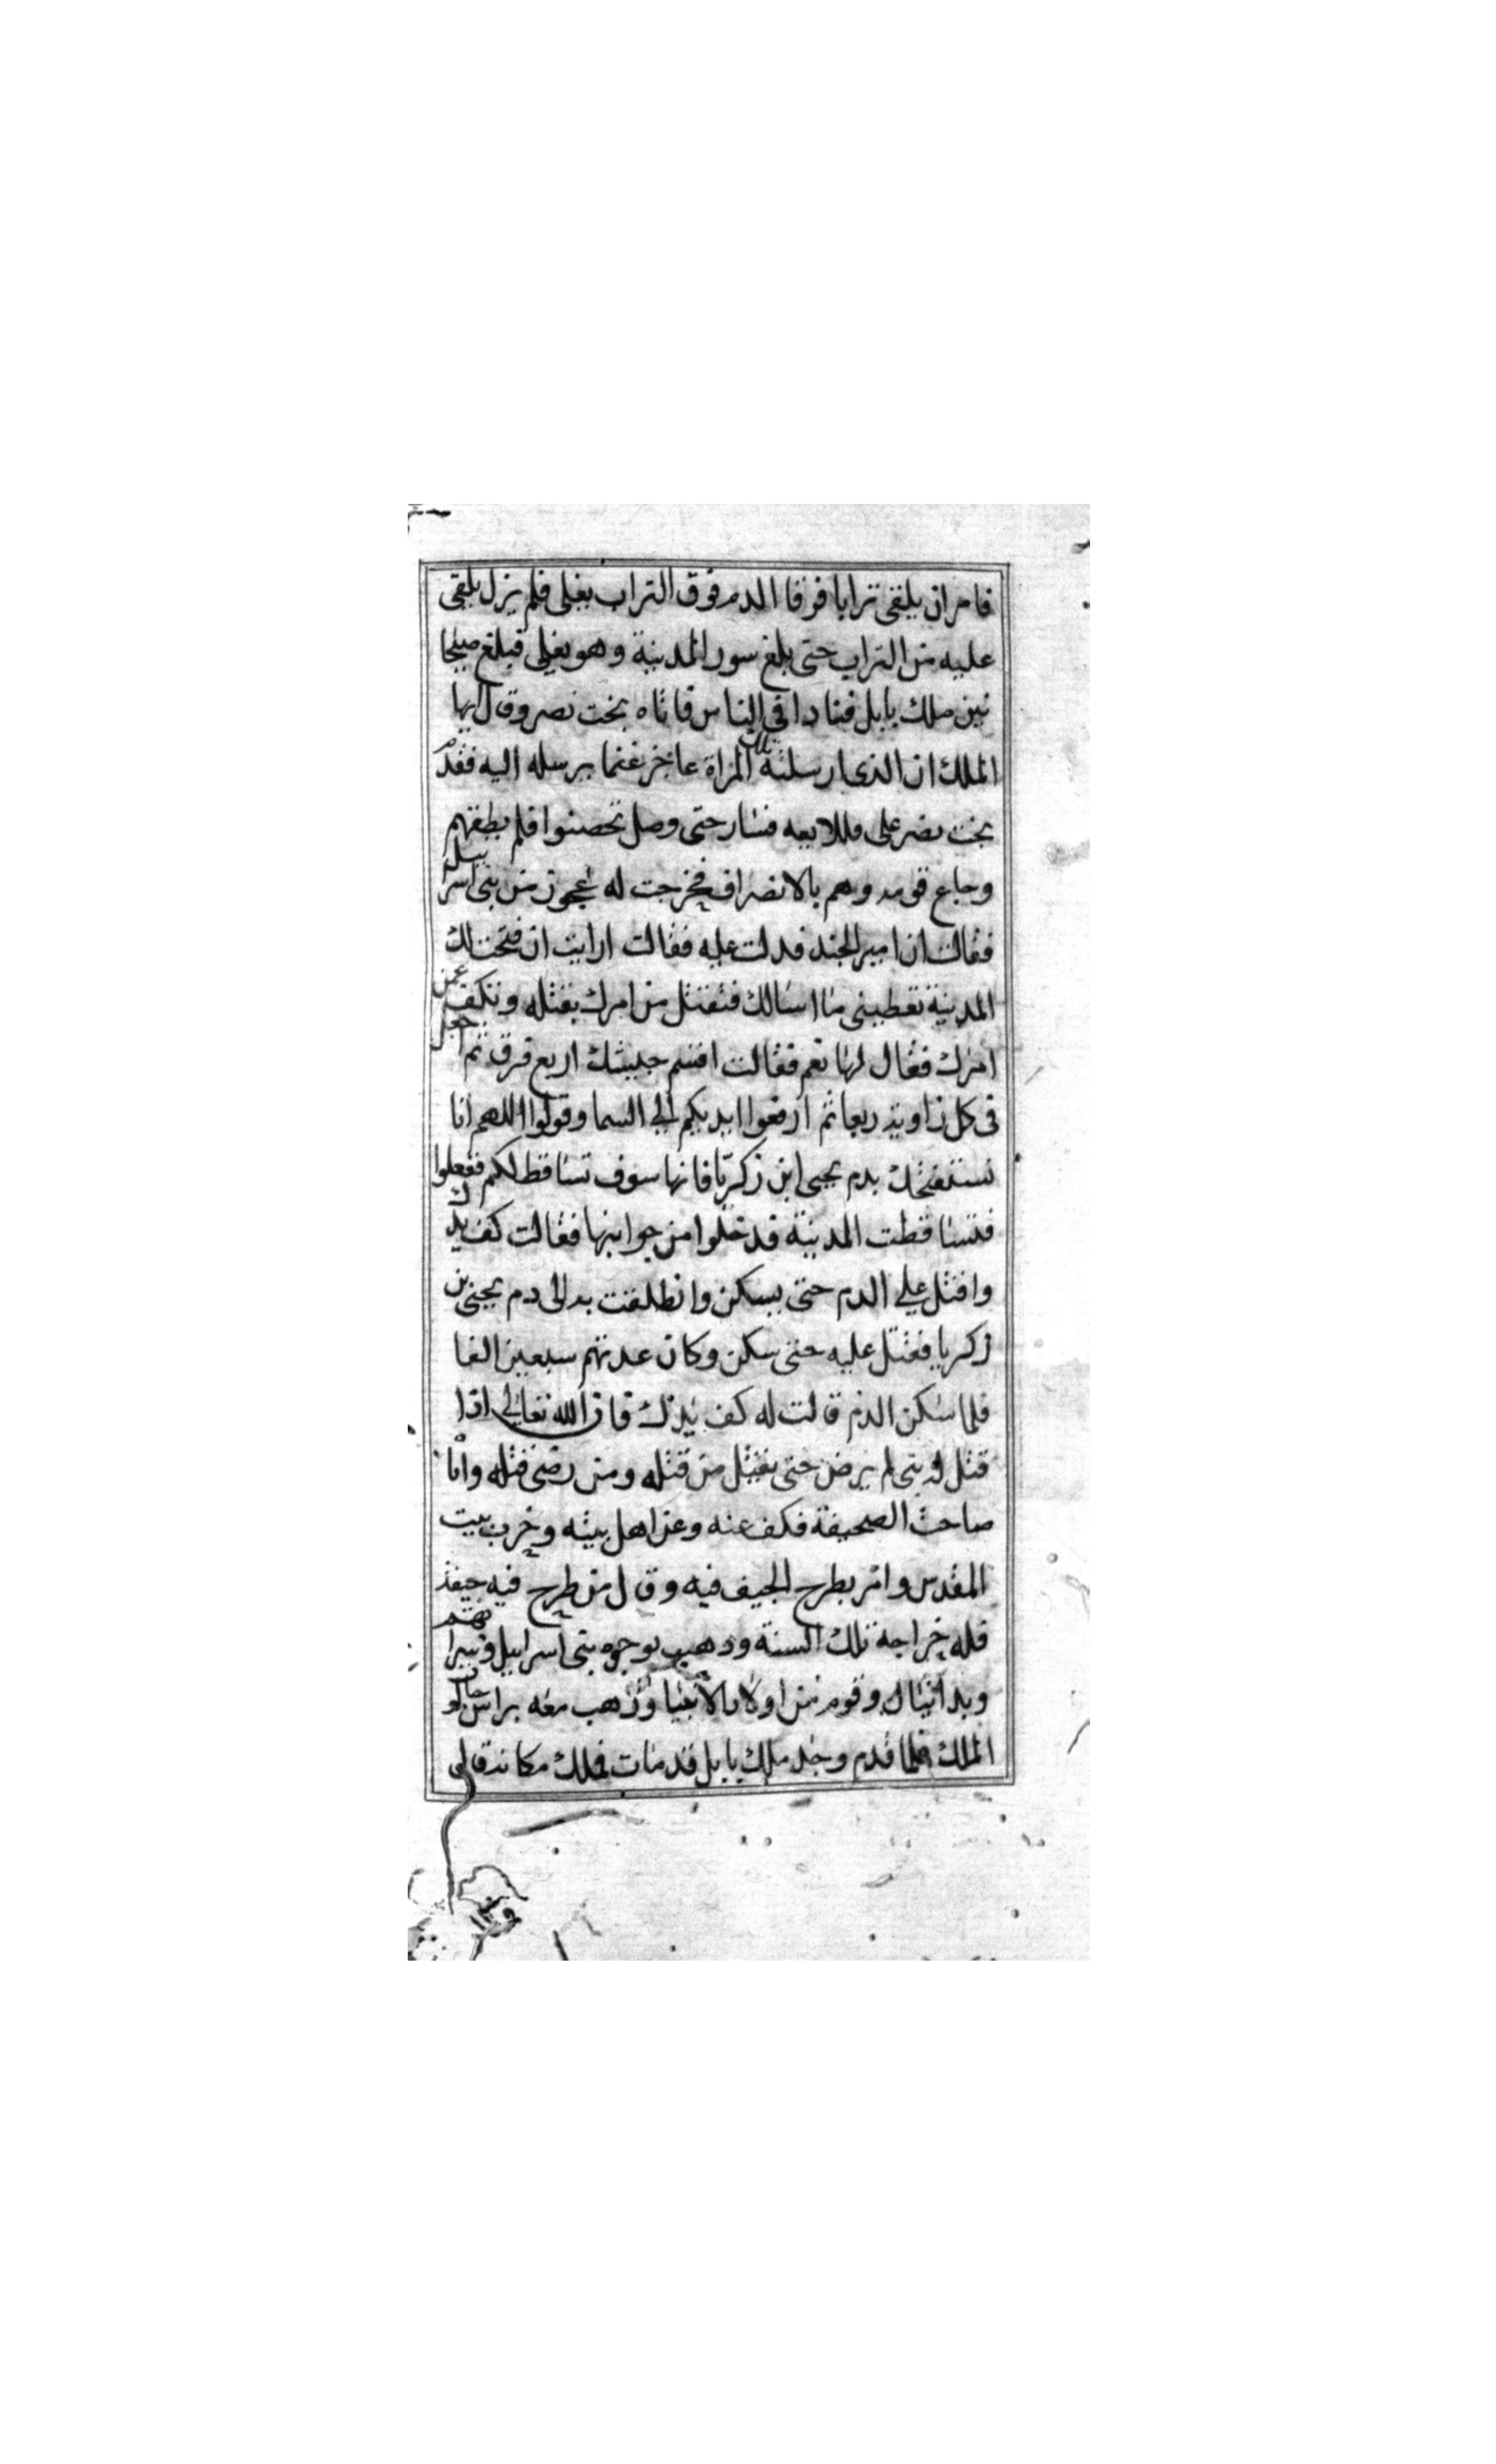 فامر ان يلقى ترابا فوقا الدم فوق التراب يغلى فلم يزل يلقى
عليه من التراب حتى بلغ سور المدينة وهو يغلى فبلغ صيحا
نين ملك بابل فنادا فى الناس فاتاه بخت نصر وقال ايها
الملك ان الذى ارسلته تلك المراة عاجز برسله اليه فقدم
بخت نصر على فسار حتى وصل تحصنوا فلم يطقهم
وجاع قومه وهم بالانصراف فخرجت له عجوز من بنى اسراييل
فقالت ان امير الجند فدلت عليه فقالت ارايت ان فتحت لك
المدينة تعطينى ما اسالك فتقتل من امرك بقتله وتكف عمن
امرك فقال لها نعم فقالت اقسم جيشك اربع فرق ثم اجعل
فى كل زاوية ربعا ثم ارفعوا ايديكم الى السما وقولوا اللهم انا
نستفتحك بدم يحيى ابن زكريا فانها سوف تساقط لكم ففعلوا
فتساقطت المدينة فدخلوا من جوانبها فقالت كف يدك
واقتل على الدم حتى يسكن وانطلقت به الى دم يحيى بن
زكريا فقتل عليه حتى سكن وكان عدتهم سبعين الفا
فلما سكن الدم قالت له كف يدك فان الله تعالى اذا
قتل له نبى لم يرض حتى يقتل من قتله ومن رضى قتله واتا
صاحب الصحيفة فكف عنه وعن اهل بيته وخرب بيت
المقدس وامر بطرح الجيف فيه وقال من طرح فيه جيفة
فله خراجة تلك السنة وذهب بوجوه بنى اسراييل
وبدانيال وقوم من اولاد الانبيا وذهب معه براس جالوت
الملك فلما قدم وجد ملك بابل قد مات فملك مكانه